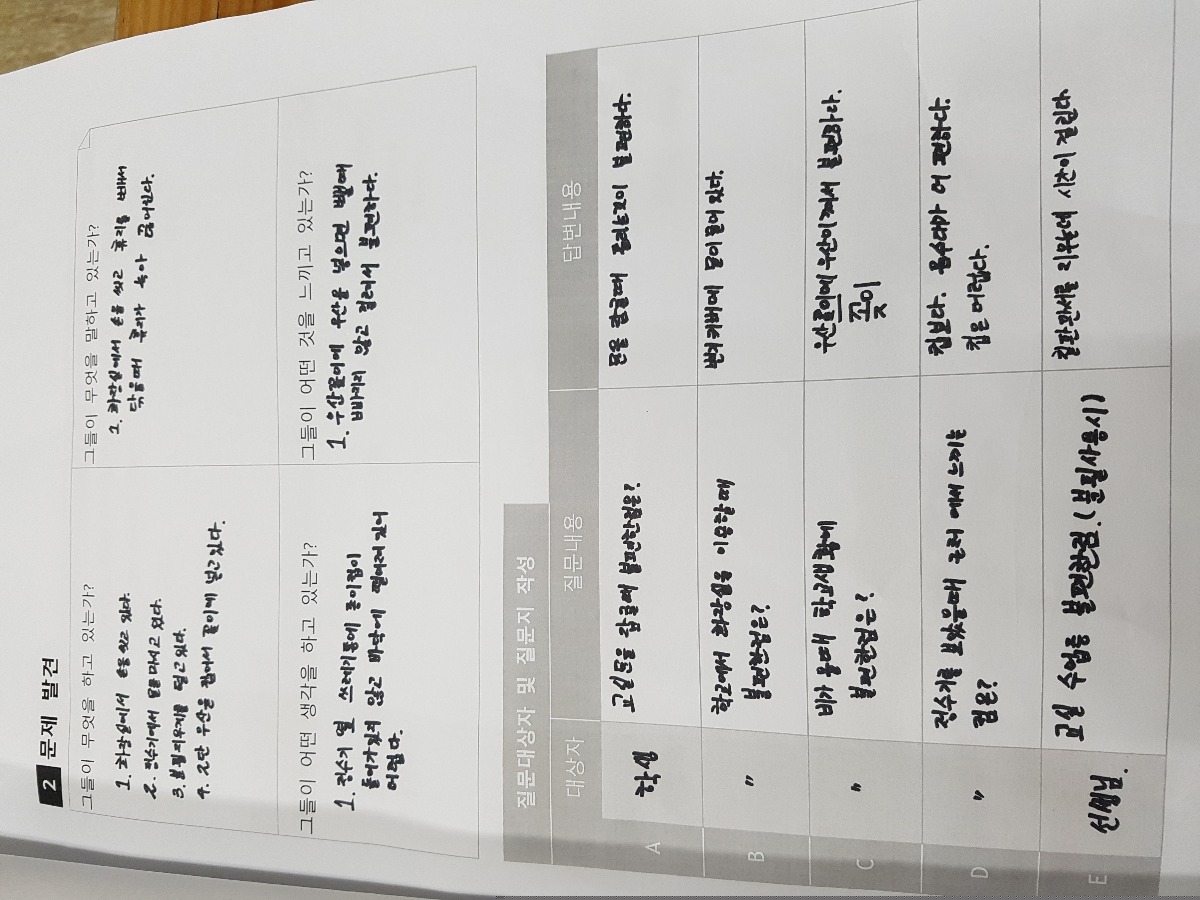 2 문제 발견
그들이 무엇을 하고 있는가?
1. 화장실에서 손을 씻고 있다.
2. 정수기에서 물을 마시고 있다.
3. 분필지우개를 털고 있다.
4. 2단 우산을 접어서 꽂이에 넣고 있다.
그들이 무엇을 말하고 있는가?
1. 화장실에서 손을 씻고 휴지를 빼서
닦을때 휴지가 녹아 끊어진다.
그들이 어떤 생각을 하고 있는가?
1. 정수기 옆 쓰레기통에 종이컵이
들어가있지 않고 바닥에 떨어져 있어
어렵다.
그들이 어떤 것을 느끼고 있는가?
1. 우산꽂이에 우산을 넣으면 뺄때
빠지지 않고 걸려서 불편하다.
질문대상자 및 질문지 작성
대상자 질문내용 답변내용
A 학생 교실문을 잠글때 불편한점은? 문을 잠글때 돌리는것이 불편하다.
B 〃 학교에서 화장실을 이용할때
불편한점은?
변기커버에 물이 묻어 있다.
C 〃 비가 올때 학교생활에
불편한점은?
우산꽂이에 우산이 껴서 불편하다.
꽂이
D 〃 정수기를 보았을때 근처에서 느끼는
점은?
컵보다. 음수대가 더 편하다.
컵은 더럽다.
E 선생님. 교실 수업중 불편한점.(분필사용시) 칠판판서를 지우는데 시간이 걸린다